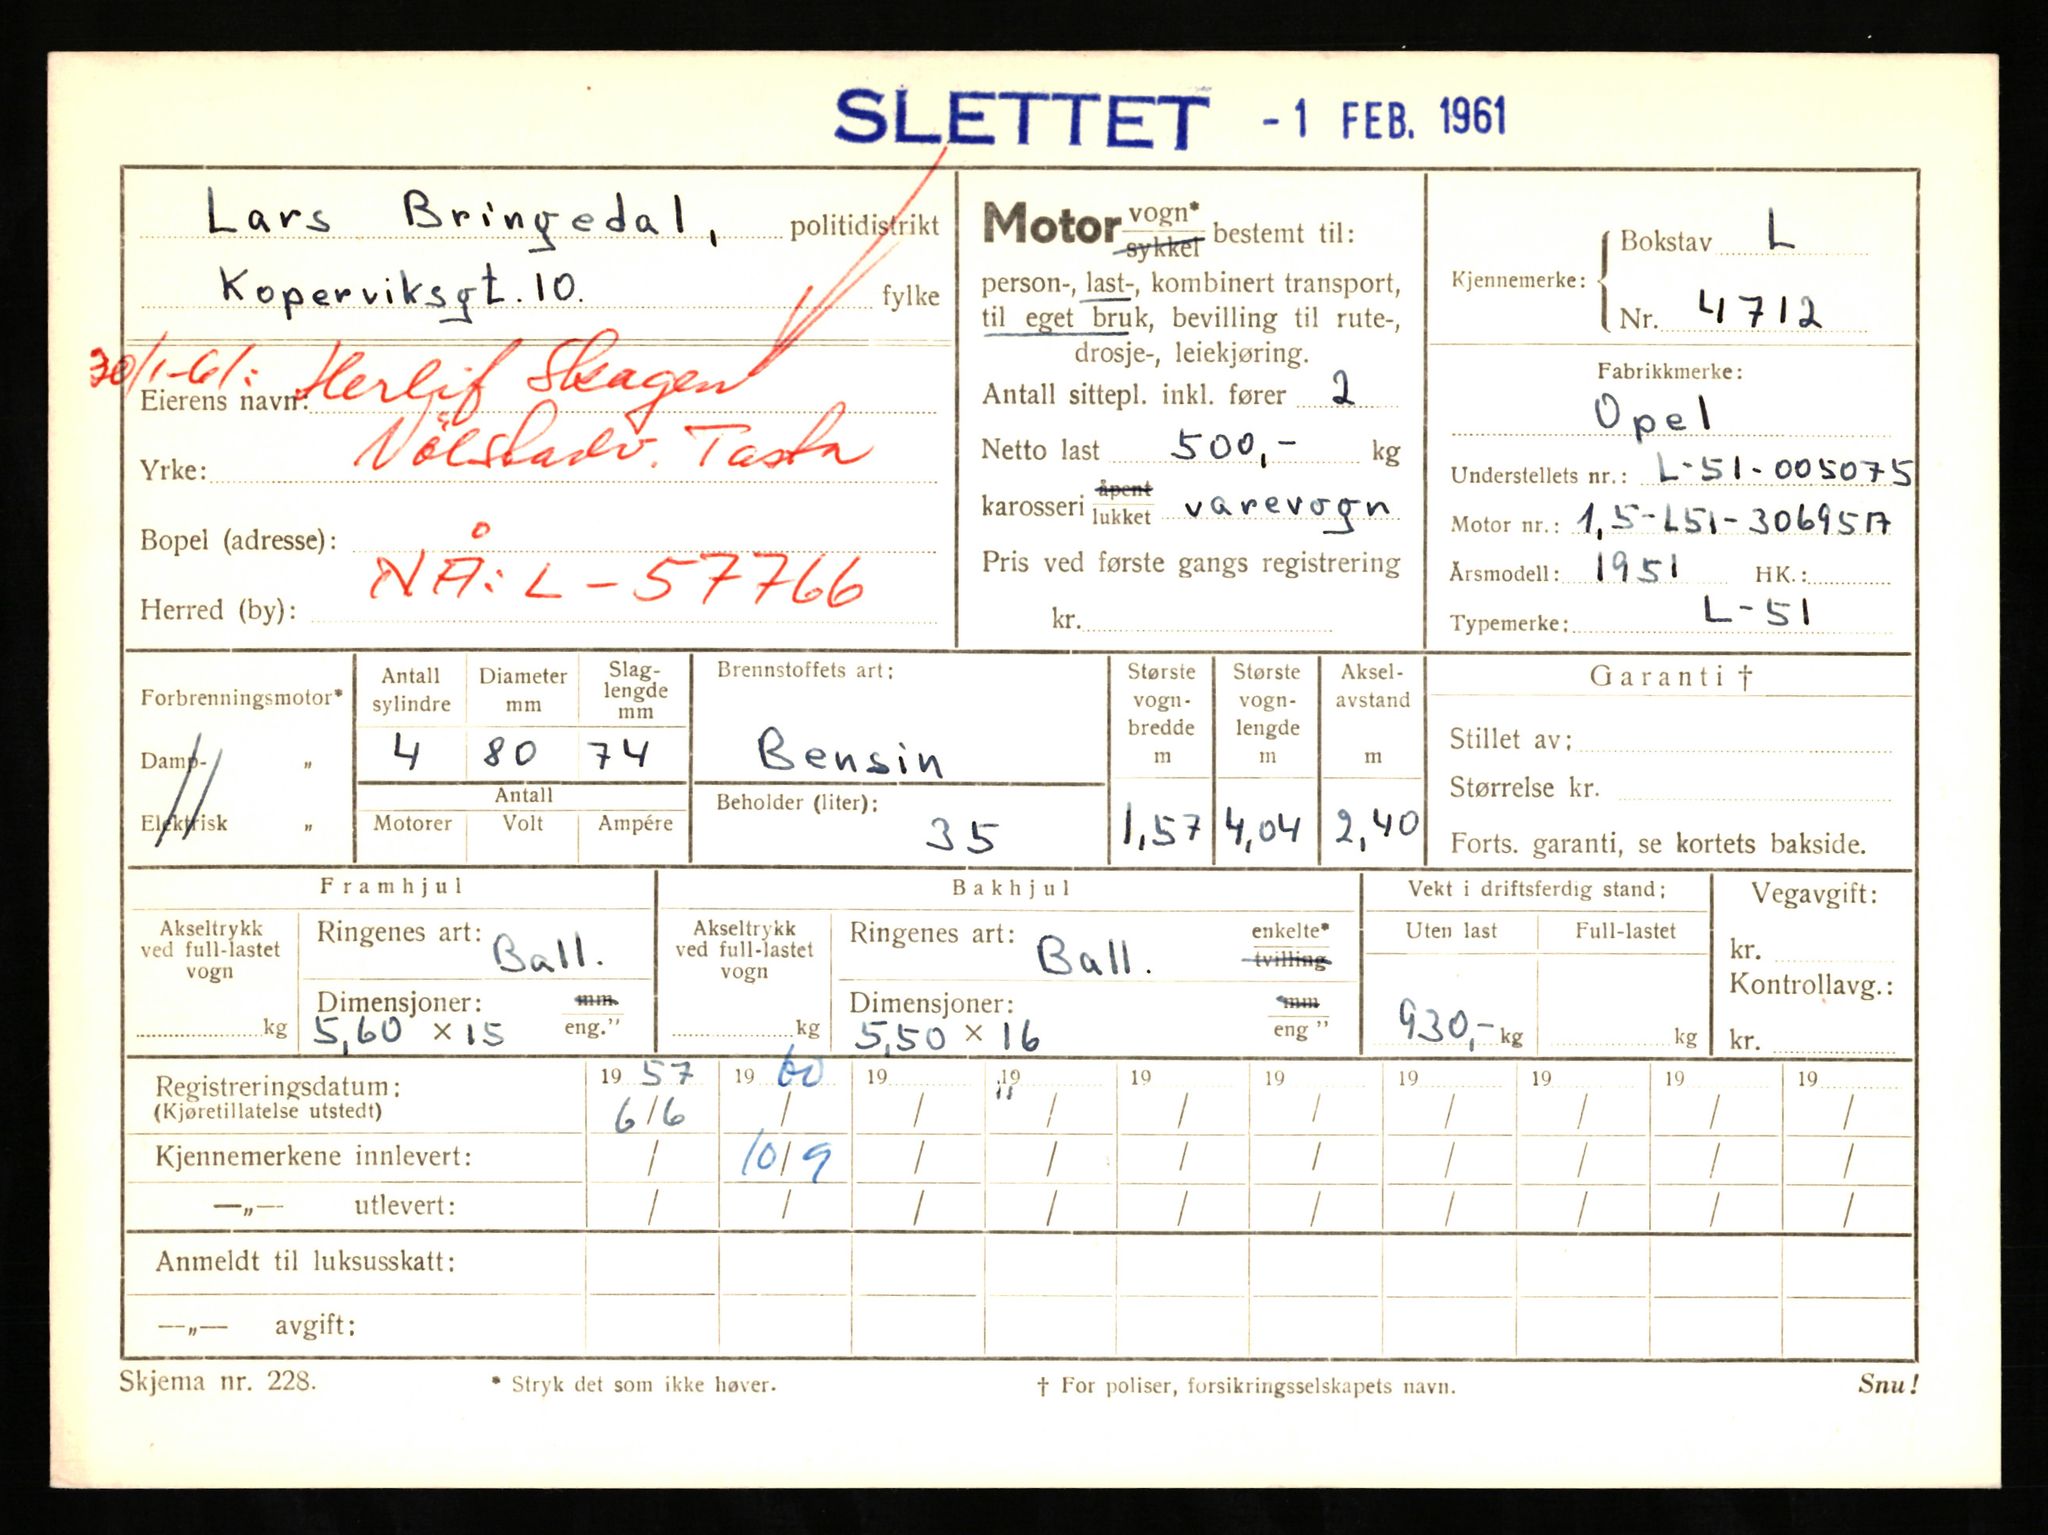 SLETTET - 1 FEB. 1961
Lars Bringedal, politidistrikt
Koperviksgt. 10. fylke
30/1-61: Herlif Skagen
Eierens navn:
Yrke: Tasta
Bopel (adresse):
NÅ: L - 57766
Herred (by):
Motor vogn* / sykkel bestemt til:
person-, last-, kombinert transport,
til eget bruk, bevilling til rute-,
drosje-, leiekjøring.
Antall sittepl. inkl. fører 2
Netto last 500,- kg
karosseri åpent / lukket varevogn
Pris ved første gangs registrering
kr.
Kjennemerke: Bokstav L
Nr. 4712
Fabrikkmerke:
Opel
Understellets nr.: L-51-005075
Motor nr.: 1,5-L51-306957
Årsmodell: 1951 HK.:
Typemerke: L-51
Forbrenningsmotor*
Damp- „
Elektrisk „
Antall sylindre Diameter mm Slag-lengde mm
4 80 74
Antall
Motorer Volt Ampére
Brennstoffets art:
Bensin
Beholder (liter):
35
Største vogn-bredde m Største vogn-lengde m Aksel-avstand m
1,57 4,04 2,40
Garanti †
Stillet av:
Størrelse kr.
Forts. garanti, se kortets bakside.
Framhjul
Akseltrykk
ved full-lastet
vogn
kg
Ringenes art: Ball.
Dimensjoner: mm
5,60 × 15 eng."
Bakhjul
Akseltrykk
ved full-lastet
vogn
kg
Ringenes art: Ball. enkelte* / tvilling
Dimensjoner: mm
5,50 × 16 eng "
Vekt i driftsferdig stand:
Uten last Full-lastet
930,- kg kg
Vegavgift:
kr.
Kontrollavg.:
kr.
Registreringsdatum: 19 57 19 60 19 19 19 19 19 19 19 19
(Kjøretillatelse utstedt) 6/6 / / / / / / / / /
Kjennemerkene innlevert: / 10/9 / / / / / / / /
—„— utlevert: / / / / / / / / / /
Anmeldt til luksusskatt:
—„— avgift:
Skjema nr. 228. * Stryk det som ikke høver. † For poliser, forsikringsselskapets navn. Snu!